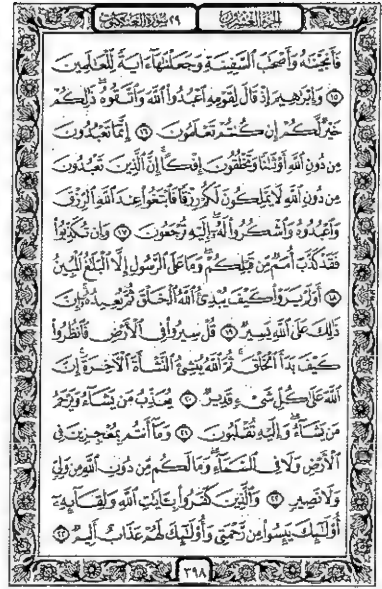 الجزء العشرون ٢٩ سورة العنكبوت
فَأَنجَيْنَٰهُ وَأَصْحَٰبَ ٱلسَّفِينَةِ وَجَعَلْنَٰهَآ ءَايَةً لِّلْعَٰلَمِينَ
﴿١٥﴾ وَإِبْرَٰهِيمَ إِذْ قَالَ لِقَوْمِهِ ٱعْبُدُوا۟ ٱللَّهَ وَٱتَّقُوهُ ۖ ذَٰلِكُمْ
خَيْرٌ لَّكُمْ إِن كُنتُمْ تَعْلَمُونَ ﴿١٦﴾ إِنَّمَا تَعْبُدُونَ
مِن دُونِ ٱللَّهِ أَوْثَٰنًا وَتَخْلُقُونَ إِفْكًا ۚ إِنَّ ٱلَّذِينَ تَعْبُدُونَ
مِن دُونِ ٱللَّهِ لَا يَمْلِكُونَ لَكُمْ رِزْقًا فَٱبْتَغُوا۟ عِندَ ٱللَّهِ ٱلرِّزْقَ
وَٱعْبُدُوهُ وَٱشْكُرُوا۟ لَهُۥٓ ۖ إِلَيْهِ تُرْجَعُونَ ﴿١٧﴾ وَإِن تُكَذِّبُوا۟
فَقَدْ كَذَّبَ أُمَمٌ مِّن قَبْلِكُمْ ۖ وَمَا عَلَى ٱلرَّسُولِ إِلَّا ٱلْبَلَٰغُ ٱلْمُبِينُ
﴿١٨﴾ أَوَلَمْ يَرَوْا۟ كَيْفَ يُبْدِئُ ٱللَّهُ ٱلْخَلْقَ ثُمَّ يُعِيدُهُۥٓ ۚ إِنَّ
ذَٰلِكَ عَلَى ٱللَّهِ يَسِيرٌ ﴿١٩﴾ قُلْ سِيرُوا۟ فِى ٱلْأَرْضِ فَٱنظُرُوا۟
كَيْفَ بَدَأَ ٱلْخَلْقَ ۚ ثُمَّ ٱللَّهُ يُنشِئُ ٱلنَّشْأَةَ ٱلْءَاخِرَةَ ۚ إِنَّ
ٱللَّهَ عَلَىٰ كُلِّ شَىْءٍ قَدِيرٌ ﴿٢٠﴾ يُعَذِّبُ مَن يَشَآءُ وَيَرْحَمُ
مَن يَشَآءُ ۖ وَإِلَيْهِ تُقْلَبُونَ ﴿٢١﴾ وَمَآ أَنتُم بِمُعْجِزِينَ فِى
ٱلْأَرْضِ وَلَا فِى ٱلسَّمَآءِ ۖ وَمَا لَكُم مِّن دُونِ ٱللَّهِ مِن وَلِىٍّ
وَلَا نَصِيرٍ ﴿٢٢﴾ وَٱلَّذِينَ كَفَرُوا۟ بِـَٔايَٰتِ ٱللَّهِ وَلِقَآئِهِۦٓ
أُو۟لَٰٓئِكَ يَئِسُوا۟ مِن رَّحْمَتِى وَأُو۟لَٰٓئِكَ لَهُمْ عَذَابٌ أَلِيمٌ ﴿٢٣﴾
٣٩٨